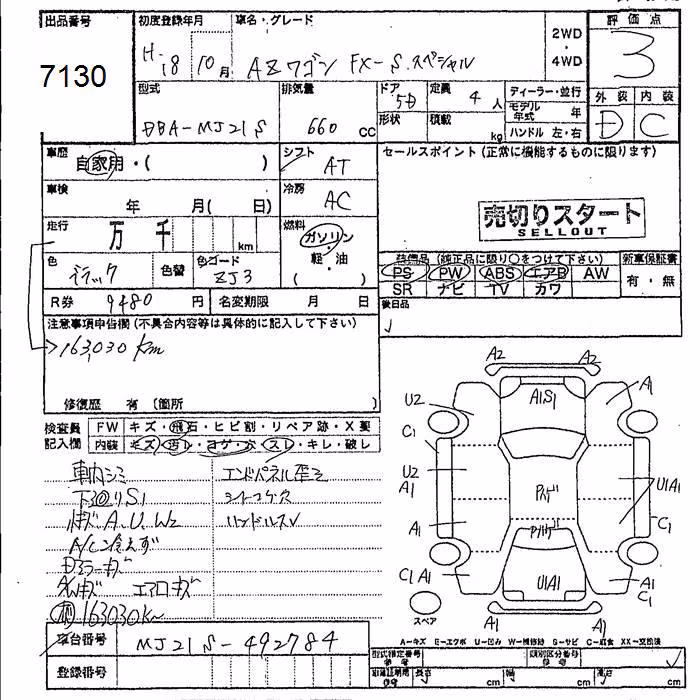 出品番号 初度登録年月 車名・グレード
7130
H-18 10月 AZワゴン FX-S.スペシャル
2WD
・
4WD
評価点
3
外装 内装
D C
型式 排気量 ドア 定員 ディーラー・並行
DBA-MJ21S 660 CC 5D 4 人
モデル年式 年
形状 積載 kg ハンドル 左・右
車歴 自家用・( ) シフト AT
セールスポイント (正常に機能するものに限ります)
車検 年 月( 日) 冷房 AC
売切りスタート
SELLOUT
走行 万 千 km 燃料 ガソリン・軽・油
色 ブラック 色替 色コード ZJ3
装備品 (純正品に限り○をつけて下さい) 新車保証書
PS PW ABS エアB AW 有・無
SR ナビ TV カワ
R券 9480 円 名変期限 月 日
後日品
注意事項申告欄 (不具合内容等は具体的に記入して下さい)
163,030 km
修復歴 有 (箇所 )
検査員記入欄 FW キズ・飛石・ヒビ割・リペア跡・X要
内装 キズ・汚レ・コゲ・穴・スレ・キレ・破レ
車内シミ エンドパネル歪ミ
下回りS1 シートコゲ穴
小キズ.A.U.W2 ハンドルスレ
A/C冷えず
Dミラーキズ
AWキズ エアロキズ
163030km
車台番号 MJ21S-492784
登録番号
A2 A2
A1S1
U2 A1
C1
U2
A1 A1
U1A1
C1
Pハゲ
Pハゲ
C1 A1 U1A1 A1
C1
スペア
A1 A1
A-キズ E-エクボ U-凹み W-補修跡 S-サビ C-腐食 XX-交換済
型式指定番号 類別区分番号
長さ cm 幅 cm 高さ cm